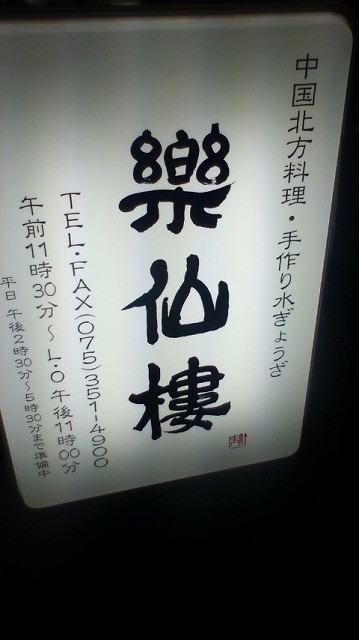 中国北方料理・手作り水ぎょうざ
樂仙樓
TEL・FAX(075)351-4900
午前11時30分～L.O午後11時00分
平日 午後2時30分～5時30分まで準備中